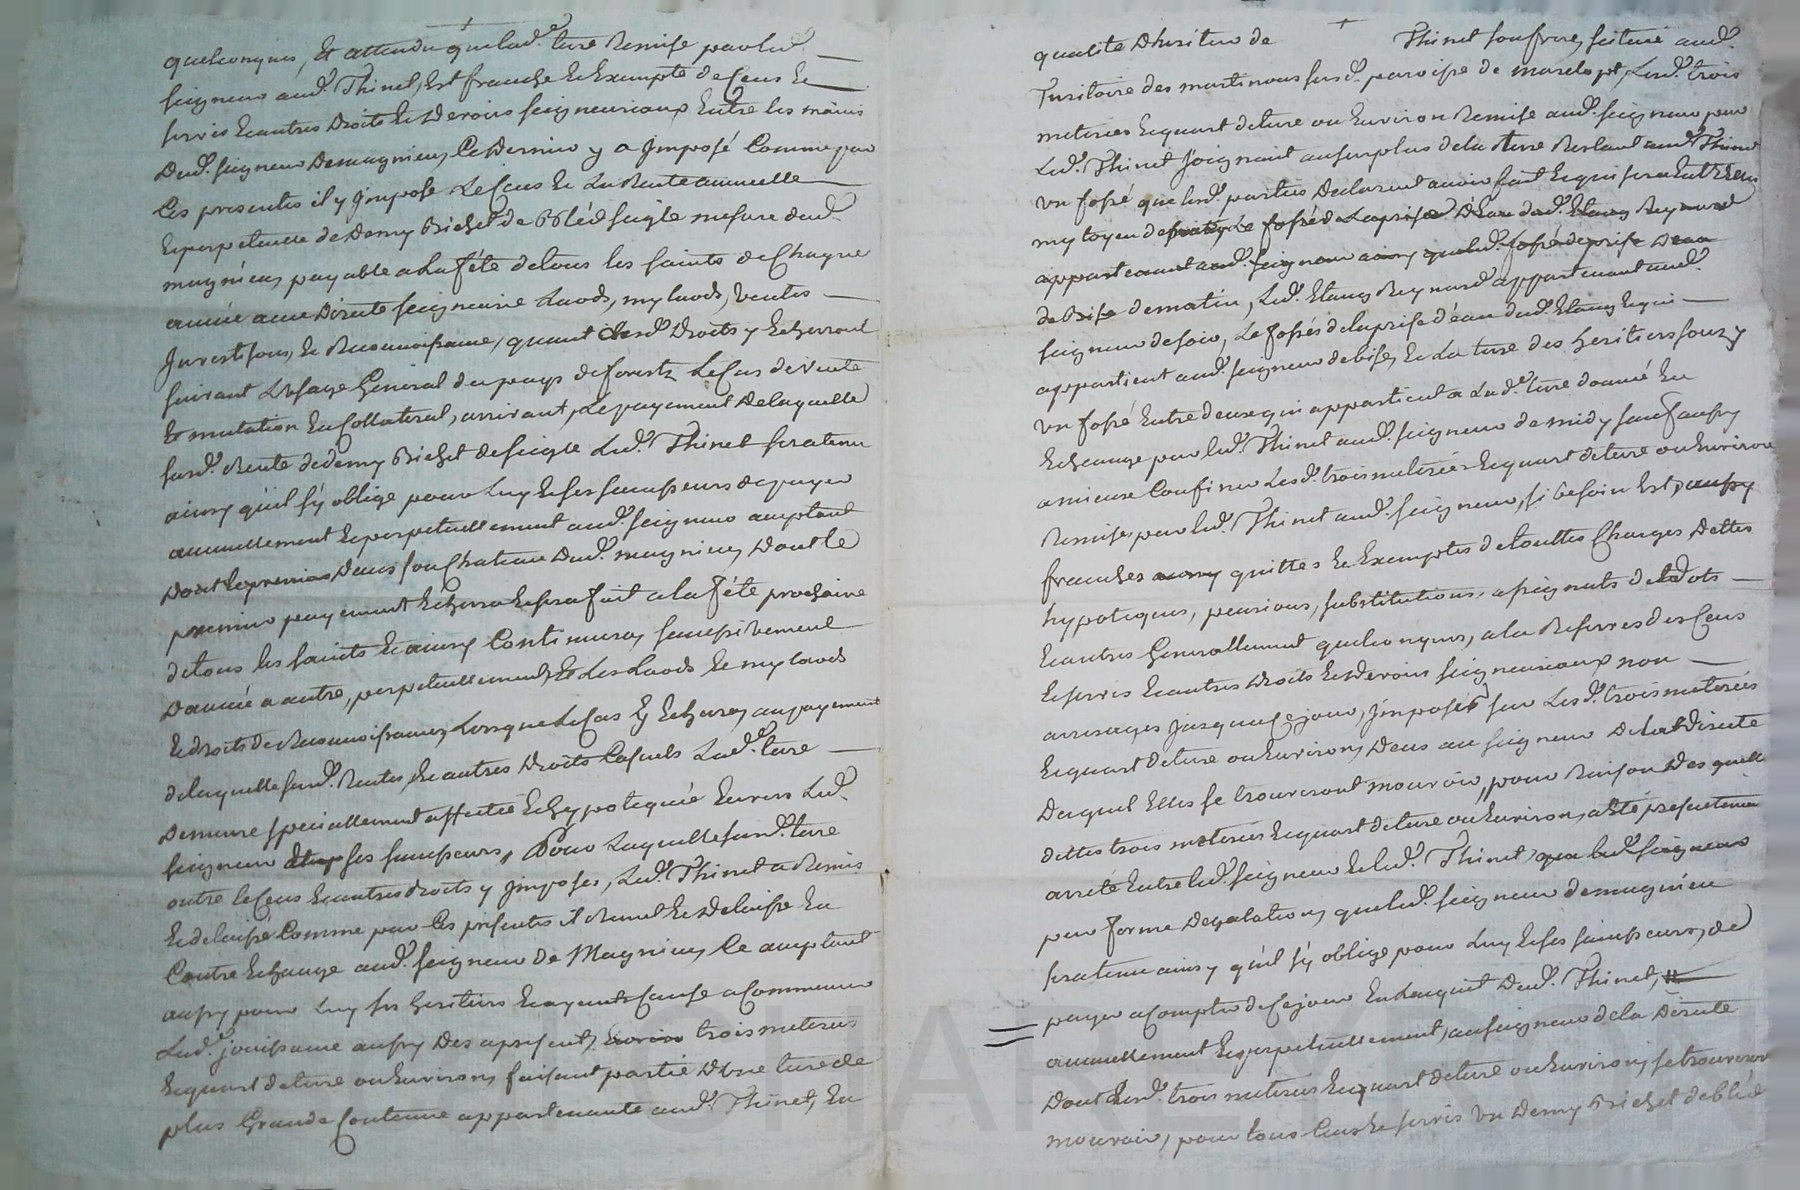 quelconques, Et attendu que lad.e terre Remise par led.
seigneur aud. Thinet, Est franche Et Exempte de Cens Et
servis Et autres Droits Et Devoirs seigneuriaux Entre les mains
Dud. seigneur De magnieu, Ce Dernier y a Jmposé Comme par
Ces presentes il y Jmpose Le Cens Et La Rente annuelle
Et perpetuelle de Demy Bichet de Bléd seigle mesure dud.
magnieu, payable a La féte de tous les saints de Chaque
année avec Directe seigneurie Laods, mylaods, ventes
Jnvestisons, Et Reconnoissance, quant auxd. Droits y Echerront
suivant L'usage Général du pays de forestz Le Cas de vente
Et mutation En Collateral, arrivant, Le payement De laquelle
susd. Rente de demy Bichet de seigle Led. Thinet sera tenu
ainsy qu'il s'y oblige pour Luy Et ses successeurs de payer
annuellement Et perpetuellement aud. seigneur acceptant
Dont le premier Dans son Chateau Dud. magnieu, Dont le
premier payement Echerra Et sera fait a la féte prochaine
de tous les saints Et ainsy Continuera, successivement
D'année a autre, perpetuellement, Et Les Laods Et mylaods
Et droits de Reconnoissance, Lorsque Le Cas y Echerra, au payement
de laquelle susd. Rente, Et autres Droits Casuels Lad.e terre
Demeure specialement affectée Et hypotequée Envers Led.
seigneur Et ses successeurs, Pour Laquelle susd. terre
outre le Cens Et autres droits y Jmposés, Led. Thinet a Remis
Et delaissé Comme par Ces presentes il Remet Et Delaisse En
Contre Echange aud. seigneur de Magnieu, Ce acceptant
aussy pour Luy ses heritiers Et ayants Cause a Commencer
Lad.e jouissance aussy Des a present, trois meterées
Et quart de terre ou Environ, faisant partie D'une terre de
plus Grande Contenue appartenante aud. Thinet, En
qualité D'heritier de Thinet son frere, scituée aud.
Territoire des martinous susd. paroisse de marclopt, Lesd. trois
meterées Et quart de terre ou Environ Remise aud. seigneur par
Led. Thinet Joignant au surplus de la terre Restant aud. Thinet
un fossé que lesd. parties Declarent avoir fait Et qui sera Entr'Eux
mytoyen de Le fossé de La prise D'Eau dud. Etang Reynard
appartenant aud. seigneur ainsy que led. fossé de prise D'eau
de Bise de matin, Led. Etang Reynard appartenant aud.
seigneur de soir, Le fossés de la prise d'éau dud. Etang Et qui
appartient aud. seigneur de bise, Et La terre des heritiers souzy
un fossé Entre deux qui appartient a Lad.e terre donnée En
Echeange par led. Thinet aud. seigneur de midy sauf aussy
a mieux Confiner Lesd. trois meterées Et quart de terre ou Environ
Remises par led. Thinet aud. seigneur, si besoin Est, aussy
franches quittes Et Exemptes de touttes Charges Dettes
hypoteques, pensions, substitutions, assignats de dots
Et autres Generallement quelconques, a la Reserves des Cens
Et servis Et autres Droits Et Devoirs seigneuriaux non
arrerages jusqu'a Ce jour, Jmposés sur Lesd. trois meterées
Et quart de terre ou Environ, Deus au seigneur De la Directe
Duquel Elles se trouveront mouvoir, pour Raison Des quelles
dittes trois meterées Et quart de terre ou Environ, a Eté presentement
arreté Entre led. seigneur Et led. Thinet, que led. seigneur
par forme D'egalation, que led. seigneur de magnieu
sera tenu ainsy qu'il s'y oblige pour Luy Et ses successeurs, de
payer a Compter de Ce jour En L'acquit Dud. Thinet,
annuellement Et perpetuellement, au seigneur de la Directe
Dont Lesd. trois meterées Et quart de terre ou Environ, se trouveront
mouvoir, pour tous Cens Et servis un Demy Bichet de bléd